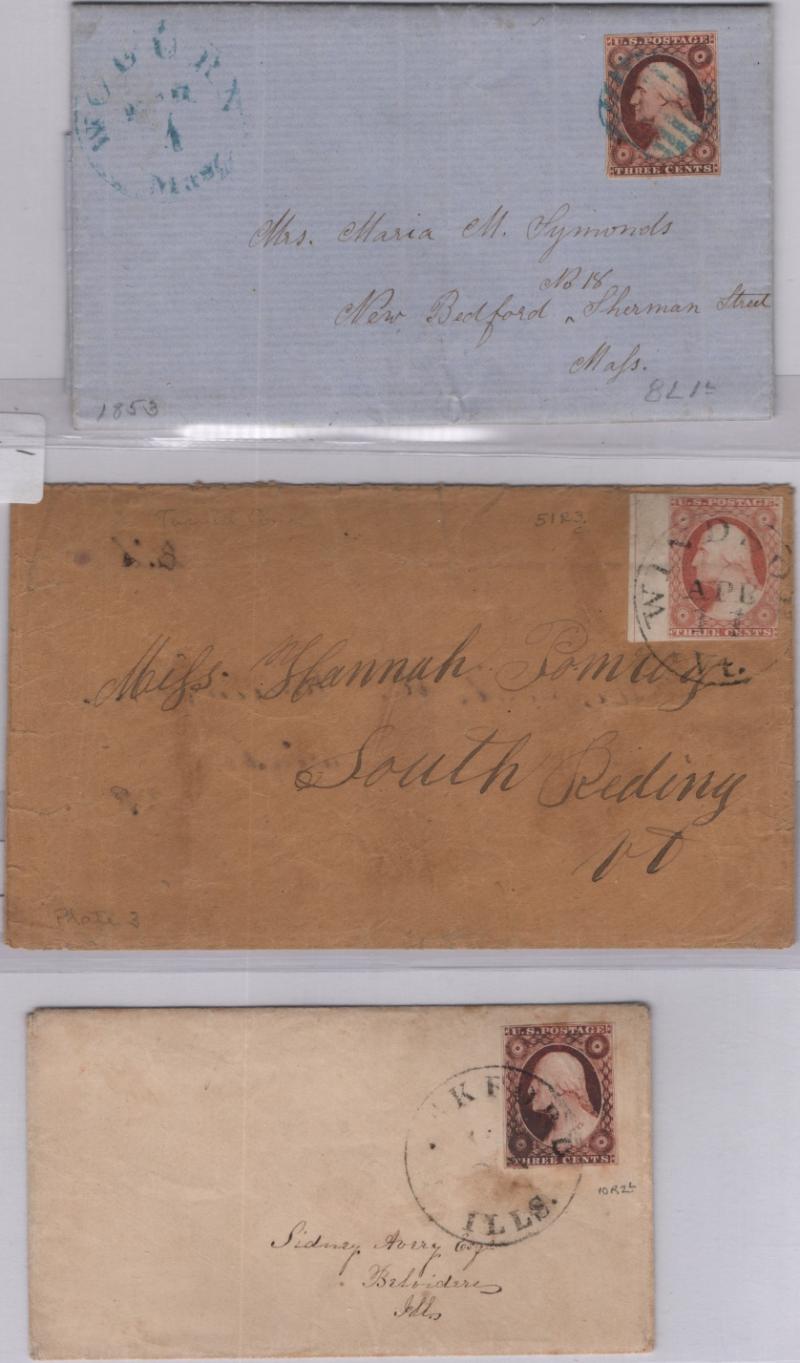 WOBURN
1
Mass
U.S. POSTAGE
THREE CENTS
Mrs. Maria M. Symonds
No 18
New Bedford ‸ Sherman Street
Mass.
1853
8L1L
51R3
U.S. POSTAGE
WINDSOR
APR
Vt.
THREE CENTS
Miss. Hannah Pomroy
South Reding
Vt
Plate 3
U.S. POSTAGE
KF RD
THREE CENTS
ILLS.
10R2L
Sidney Avery Esqr
Belvidere
Ills